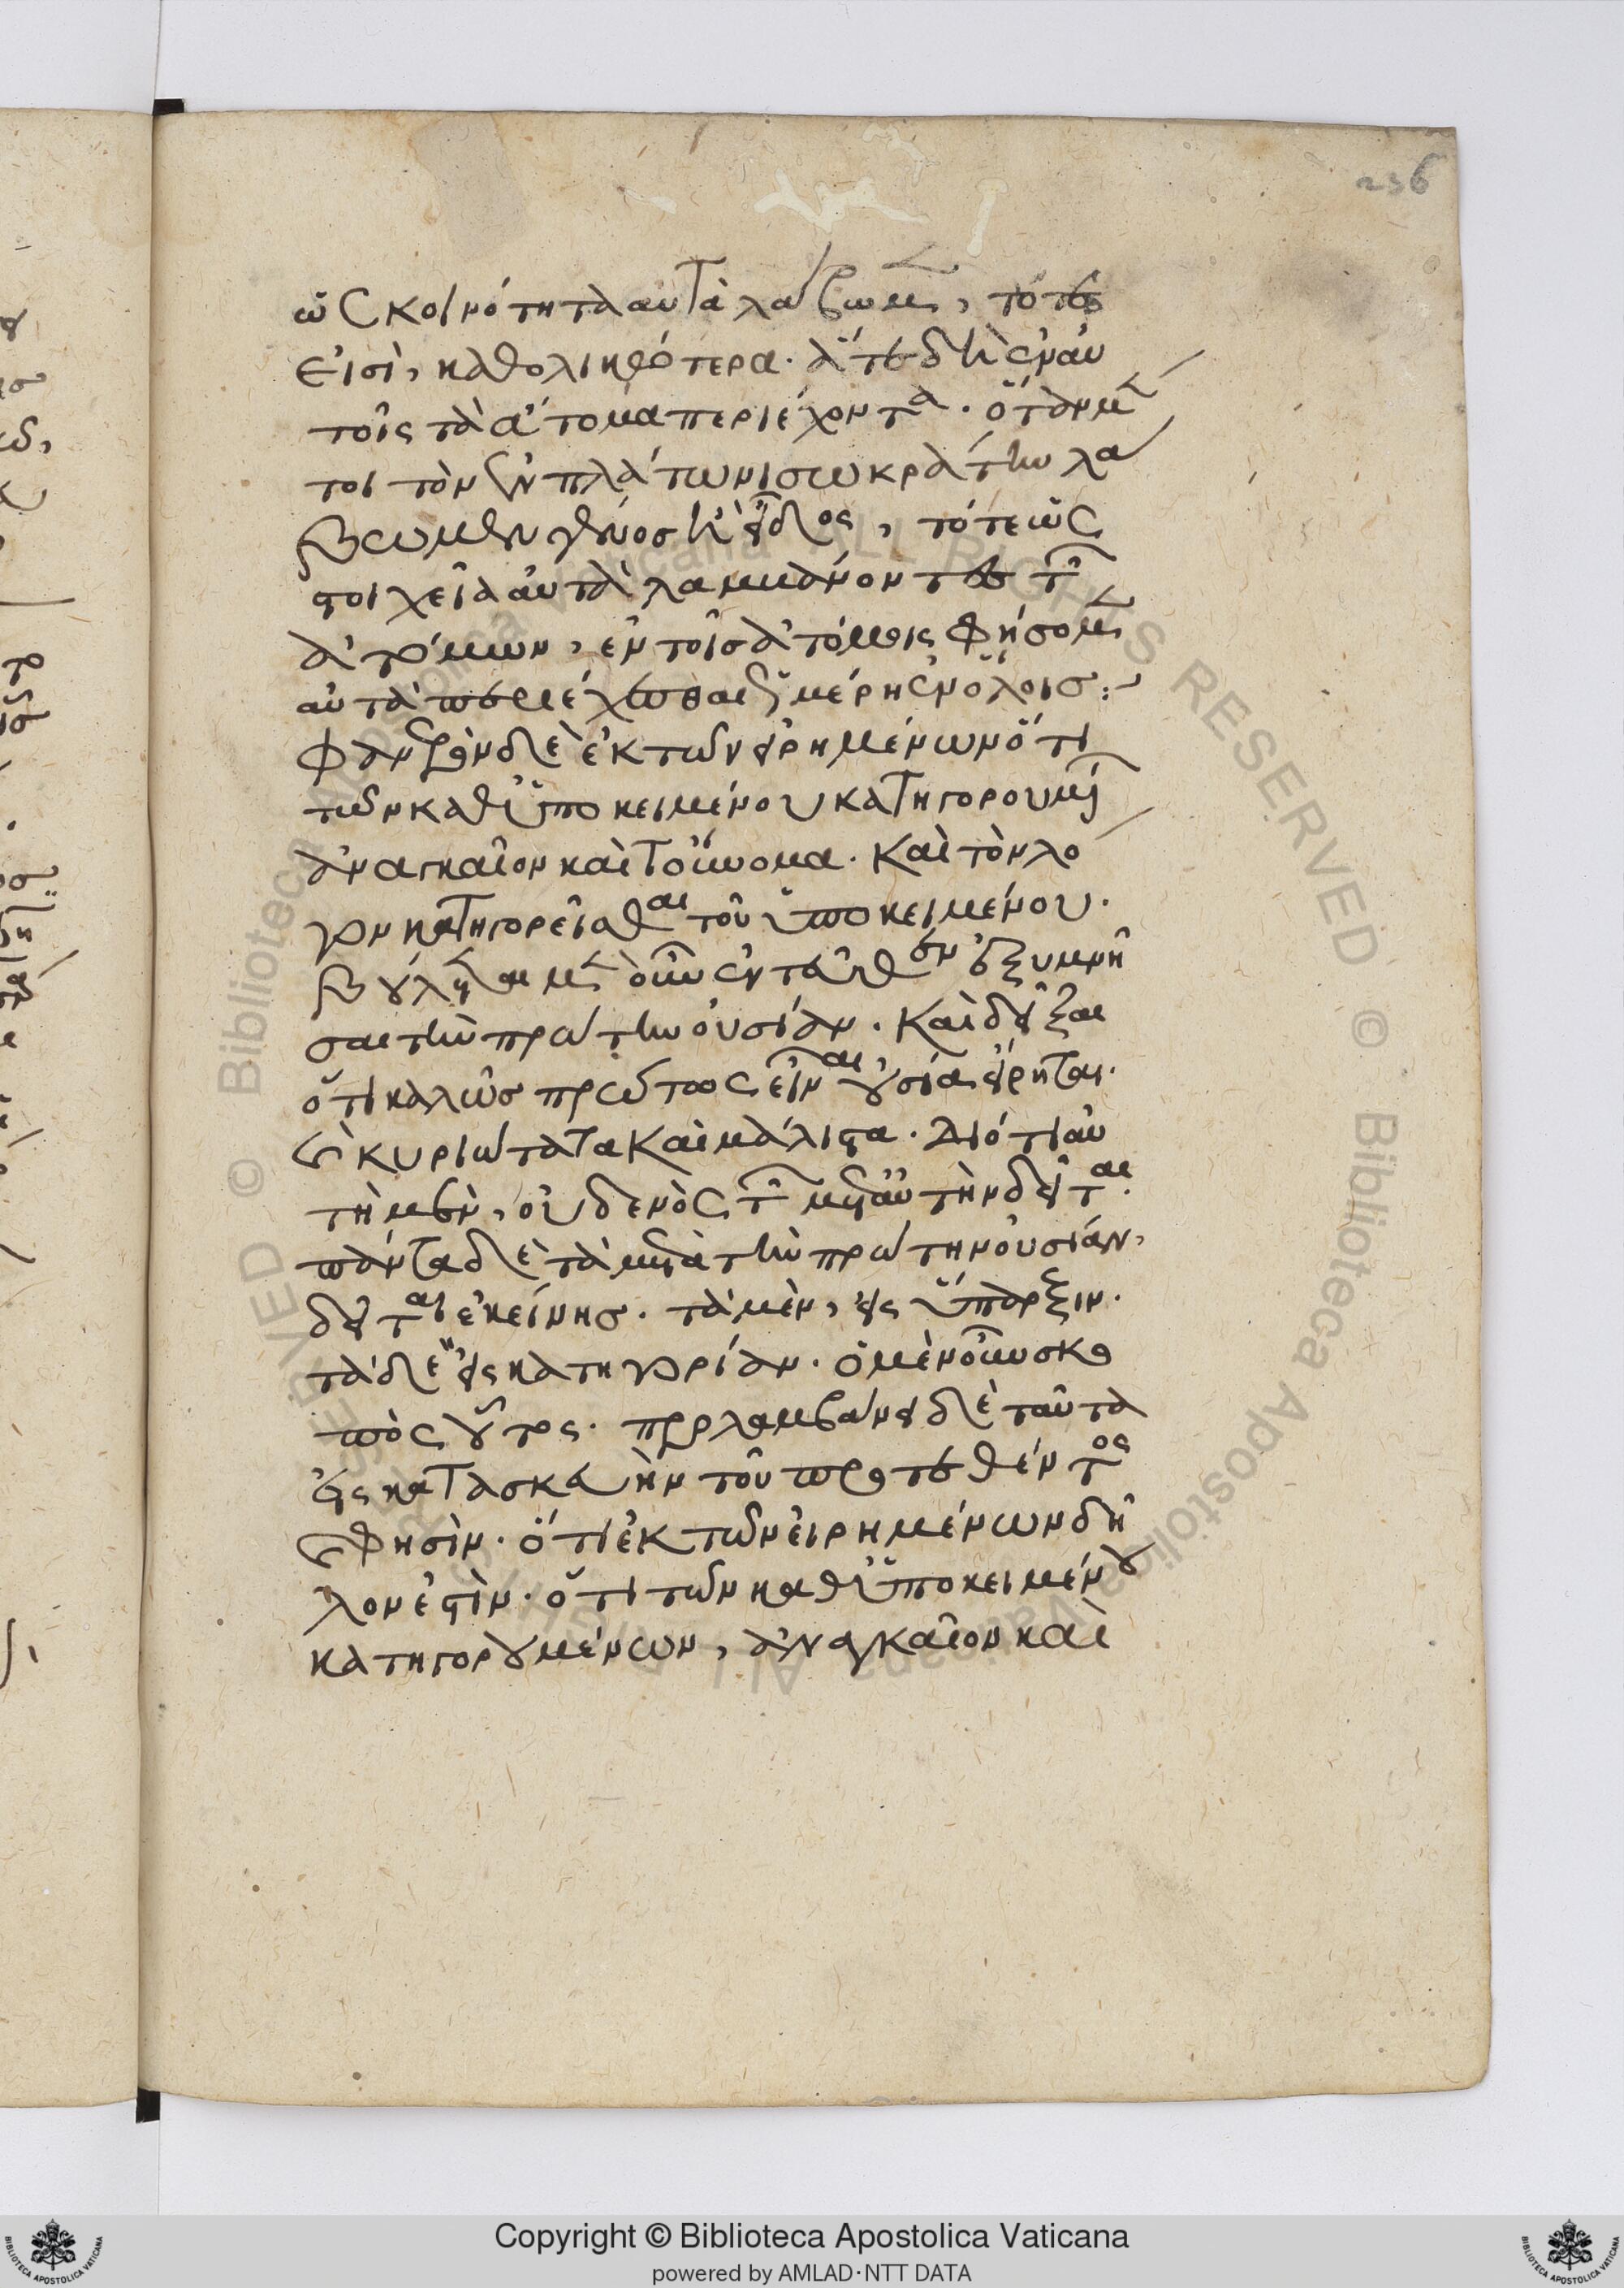 236
ὡς κοινότητα αὐτὰ λάβωμεν, τότε
εἰσὶ, καθολικώτερα. ἅτε δὴ ἐν αὐ
τοῖς τὰ ἄτομα περιέχοντα. ὅταν μέν
τοι τὸν ἐν πλάτωνι σωκράτην λά
βωμεν γένος ἢ εἶδος, τότε ὡς
στοιχεῖα αὐτὰ λαμβάνοντες τῶν
ἀτόμων, ἐν τοῖς ἀτόμοις φήσομεν
αὐτὰ περιέχεσθαι ὡς μέρη ἐν ὅλοις:
φανερὸν δὲ ἐκ τῶν εἰρημένων ὅτι
τῶν καθ' ὑποκειμένου κατηγορουμένων
ἀναγκαῖον καὶ τοὔνομα. καὶ τὸν λό
γον κατηγορεῖσθαι τοῦ ὑποκειμένου.
βούλεται μὲν οὖν ἐντεῦθεν ἐξυμνῆ
σαι τὴν πρώτην οὐσίαν. καὶ δεῖξαι
ὅτι καλῶς πρώτως εἶναι οὐσία εἴρηται.
καὶ κυριώτατα καὶ μάλιστα. διότι αὐ
τὴ μὲν, οὐδενὸς τῶν μετ' αὐτὴν δεῖται.
πάντα δὲ τὰ μετὰ τὴν πρώτην οὐσίαν,
δεῖται ἐκείνης. τὰ μὲν, εἰς ὕπαρξιν.
τὰ δὲ εἰς κατηγορίαν. ὁ μὲν οὖν σκο
πὸς οὗτος. προλαμβάνει δὲ ταῦτα
εἰς κατασκευὴν τοῦ προτεθέντος
καὶ φησὶν. ὅτι ἐκ τῶν εἰρημένων δῆ
λον ἐστὶν. ὅτι τῶν καθ' ὑποκειμένου
κατηγορουμένων, ἀναγκαῖον καὶ
Copyright © Biblioteca Apostolica Vaticana
powered by AMLAD·NTT DATA